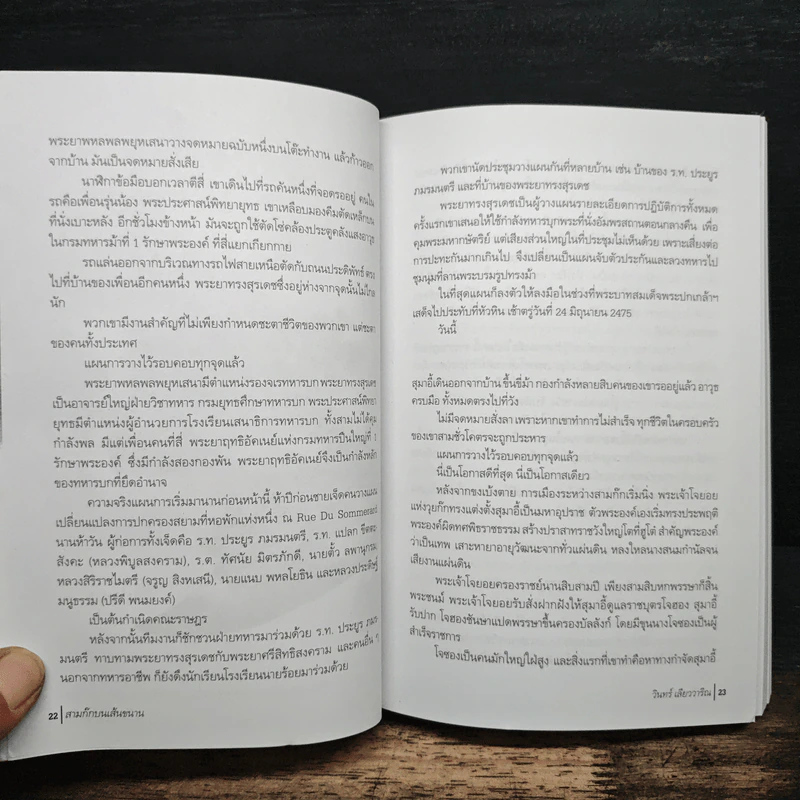 พระยาพหลพลพยุหเสนาวางจดหมายฉบับหนึ่งบนโต๊ะทำงาน แล้วก้าวออก
จากบ้าน มันเป็นจดหมายสั่งเสีย
นาฬิกาข้อมือบอกเวลาตีสี่ เขาเดินไปที่รถคันหนึ่งที่จอดรออยู่ คนใน
รถคือเพื่อนรุ่นน้อง พระประศาสน์พิทยายุทธ เขาเหลือบมองคีมตัดเหล็กบน
ที่นั่งเบาะหลัง อีกชั่วโมงข้างหน้า มันจะถูกใช้ตัดโซ่คล้องประตูคลังแสงอาวุธ
ในกรมทหารม้าที่ 1 รักษาพระองค์ ที่สี่แยกเกียกกาย
รถแล่นออกจากบริเวณทางรถไฟสายเหนือตัดกับถนนประดิพัทธ์ ตรง
ไปที่บ้านของเพื่อนอีกคนหนึ่ง พระยาทรงสุรเดชซึ่งอยู่ห่างจากจุดนั้นไม่ไกล
นัก
พวกเขามีงานสำคัญที่ไม่เพียงกำหนดชะตาชีวิตของพวกเขา แต่ชะตา
ของคนทั้งประเทศ
แผนการวางไว้รอบคอบทุกจุดแล้ว
พระยาพหลพลพยุหเสนามีตำแหน่งรองจเรทหารบก พระยาทรงสุรเดช
เป็นอาจารย์ใหญ่ฝ่ายวิชาทหาร กรมยุทธศึกษาทหารบก พระประศาสน์พิทยา
ยุทธมีตำแหน่งผู้อำนวยการโรงเรียนเสนาธิการทหารบก ทั้งสามไม่ได้คุม
กำลังพล มีแต่เพื่อนคนที่สี่ พระยาฤทธิอัคเนย์แห่งกรมทหารปืนใหญ่ที่ 1
รักษาพระองค์ ซึ่งมีกำลังสองกองพัน พระยาฤทธิอัคเนย์จึงเป็นกำลังหลัก
ของทหารบกที่ยึดอำนาจ
ความจริงแผนการเริ่มมานานก่อนหน้านี้ ห้าปีก่อนชายเจ็ดคนวางแผน
เปลี่ยนแปลงการปกครองสยามที่หอพักแห่งหนึ่ง ณ Rue Du Sommerard
นานห้าวัน ผู้ก่อการทั้งเจ็ดคือ ร.ท. ประยูร ภมรมนตรี, ร.ท. แปลก ขีตตะ
สังคะ (หลวงพิบูลสงคราม), ร.ต. ทัศนัย มิตรภักดี, นายตั้ว ลพานุกรม
หลวงสิริราชไมตรี (จรูญ สิงหเสนี), นายแนบ พหลโยธิน และหลวงประดิษฐ์
มนูธรรม (ปรีดี พนมยงค์)
เป็นต้นกำเนิดคณะราษฎร
หลังจากนั้นทีมงานก็ชักชวนฝ่ายทหารมาร่วมด้วย ร.ท. ประยูร ภมร
มนตรี ทาบทามพระยาทรงสุรเดชกับพระยาศรีสิทธิสงคราม และคนอื่น ๆ
นอกจากทหารอาชีพ ก็ยังดึงนักเรียนโรงเรียนนายร้อยมาร่วมด้วย
22 | สามก๊กบนเส้นขนาน
พวกเขานัดประชุมวางแผนกันที่หลายบ้าน เช่น บ้านของ ร.ท. ประยูร
ภมรมนตรี และที่บ้านของพระยาทรงสุรเดช
พระยาทรงสุรเดชเป็นผู้วางแผนรายละเอียดการปฏิบัติการทั้งหมด
ครั้งแรกเขาเสนอให้ใช้กำลังทหารบุกพระที่นั่งอัมพรสถานตอนกลางคืน เพื่อ
คุมพระมหากษัตริย์ แต่เสียงส่วนใหญ่ในที่ประชุมไม่เห็นด้วย เพราะเสี่ยงต่อ
การปะทะกันมากเกินไป จึงเปลี่ยนเป็นแผนจับตัวประกันและลวงทหารไป
ชุมนุมที่ลานพระบรมรูปทรงม้า
ในที่สุดแผนก็ลงตัวให้ลงมือในช่วงที่พระบาทสมเด็จพระปกเกล้าฯ
เสด็จไปประทับที่หัวหิน เช้าตรู่วันที่ 24 มิถุนายน 2475
วันนี้
สุมาอี้เดินออกจากบ้าน ขึ้นขี่ม้า กองกำลังหลายสิบคนของเขารออยู่แล้ว อาวุธ
ครบมือ ทั้งหมดตรงไปที่วัง
ไม่มีจดหมายสั่งลา เพราะหากเขาทำการไม่สำเร็จ ทุกชีวิตในครอบครัว
ของเขาสามชั่วโคตรจะถูกประหาร
แผนการวางไว้รอบคอบทุกจุดแล้ว
นี่เป็นโอกาสดีที่สุด นี่เป็นโอกาสเดียว
หลังจากขงเบ้งตาย การเมืองระหว่างสามก๊กเริ่มนิ่ง พระเจ้าโจยอย
แห่งวุยก๊กทรงแต่งตั้งสุมาอี้เป็นมหาอุปราช ตัวพระองค์เองเริ่มทรงประพฤติ
พระองค์ผิดทศพิธราชธรรม สร้างปราสาทราชวังใหญ่โตที่ฮูโต๋ สำคัญพระองค์
ว่าเป็นเทพ เสาะหายาอายุวัฒนะจากทั่วแผ่นดิน หลงใหลนางสนมกำนัลจน
เสียงานแผ่นดิน
พระเจ้าโจยอยครองราชย์นานสิบสามปี เพียงสามสิบหกพรรษาก็สิ้น
พระชนม์ พระเจ้าโจยอยรับสั่งฝากฝังให้สุมาอี้ดูแลราชบุตรโจฮอง สุมาอี้
รับปาก โจฮองชันษาแปดพรรษาขึ้นครองบัลลังก์ โดยมีขุนนางโจซองเป็นผู้
สำเร็จราชการ
โจซองเป็นคนมักใหญ่ใฝ่สูง และสิ่งแรกที่เขาทำคือหาทางกำจัดสุมาอี้
วินทร์ เลียววาริณ | 23